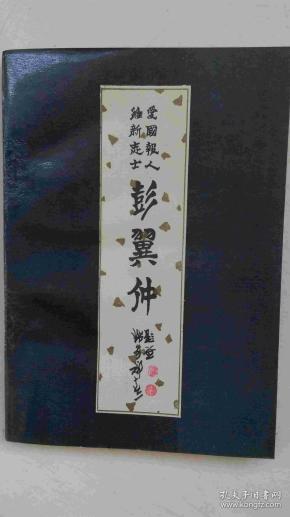 愛國報人
維新志士
彭翼仲
孔夫子旧书网